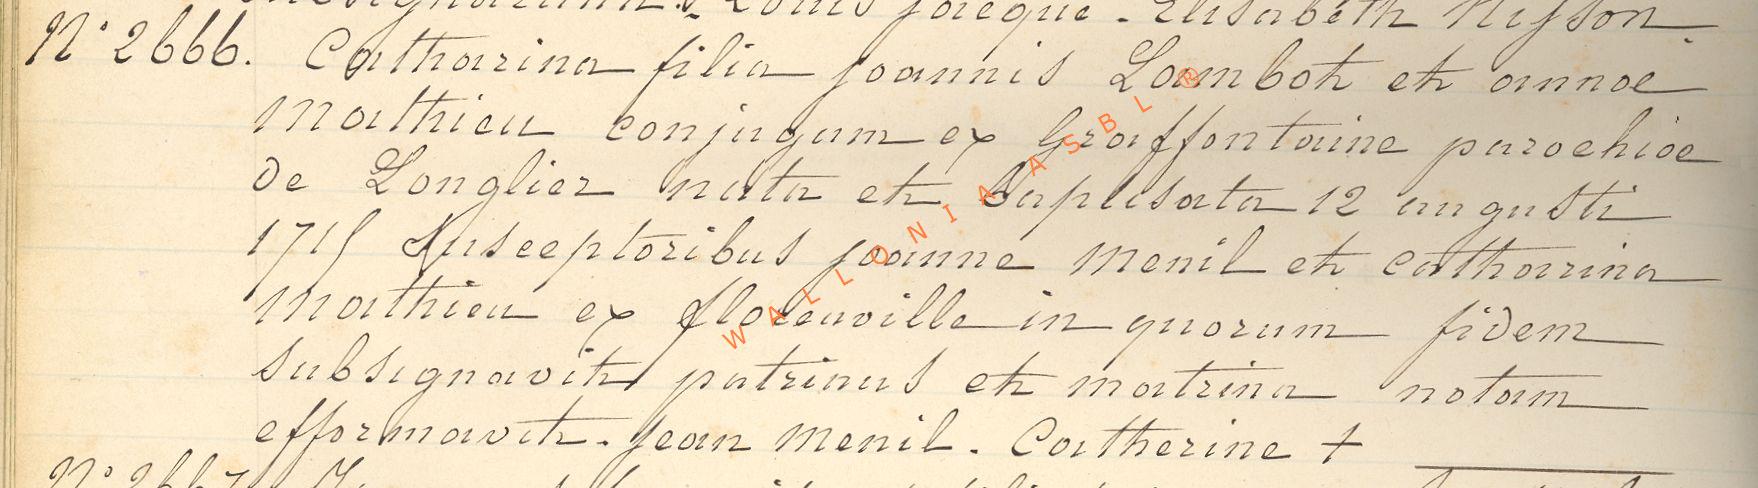 Louis Jacque - Elisabeth Nisson
N° 2666. Catharina filia joannis Lambot et annae
Mathieu conjugum ex Graffontaine parochiae
de Longlier nata et baptisata 12 augusti
1715 Susceptoribus joanne Menil et catharina
Mathieu ex florenville in quorum fidem
subsignavit patrinus et matrina notam
efformavit. Jean Menil. Catherine +
N° 2667
WALLONIA ASBL ®